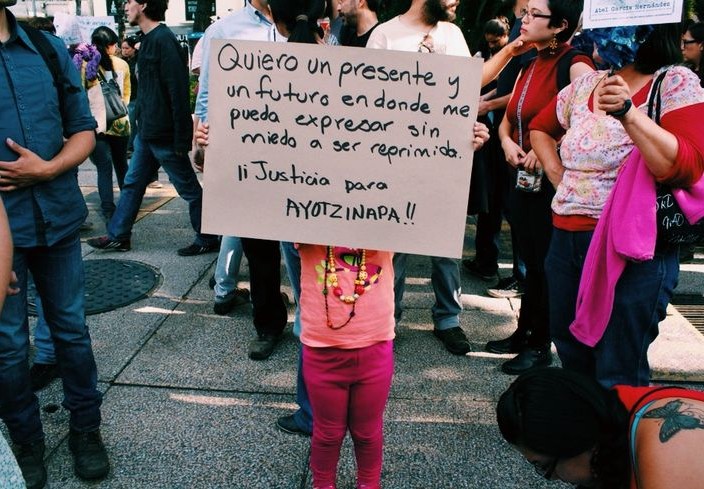 Quiero un presente y
un futuro en donde me
pueda expresar sin
miedo a ser reprimida.
¡¡Justicia para
AYOTZINAPA!!
Abel García Hernández